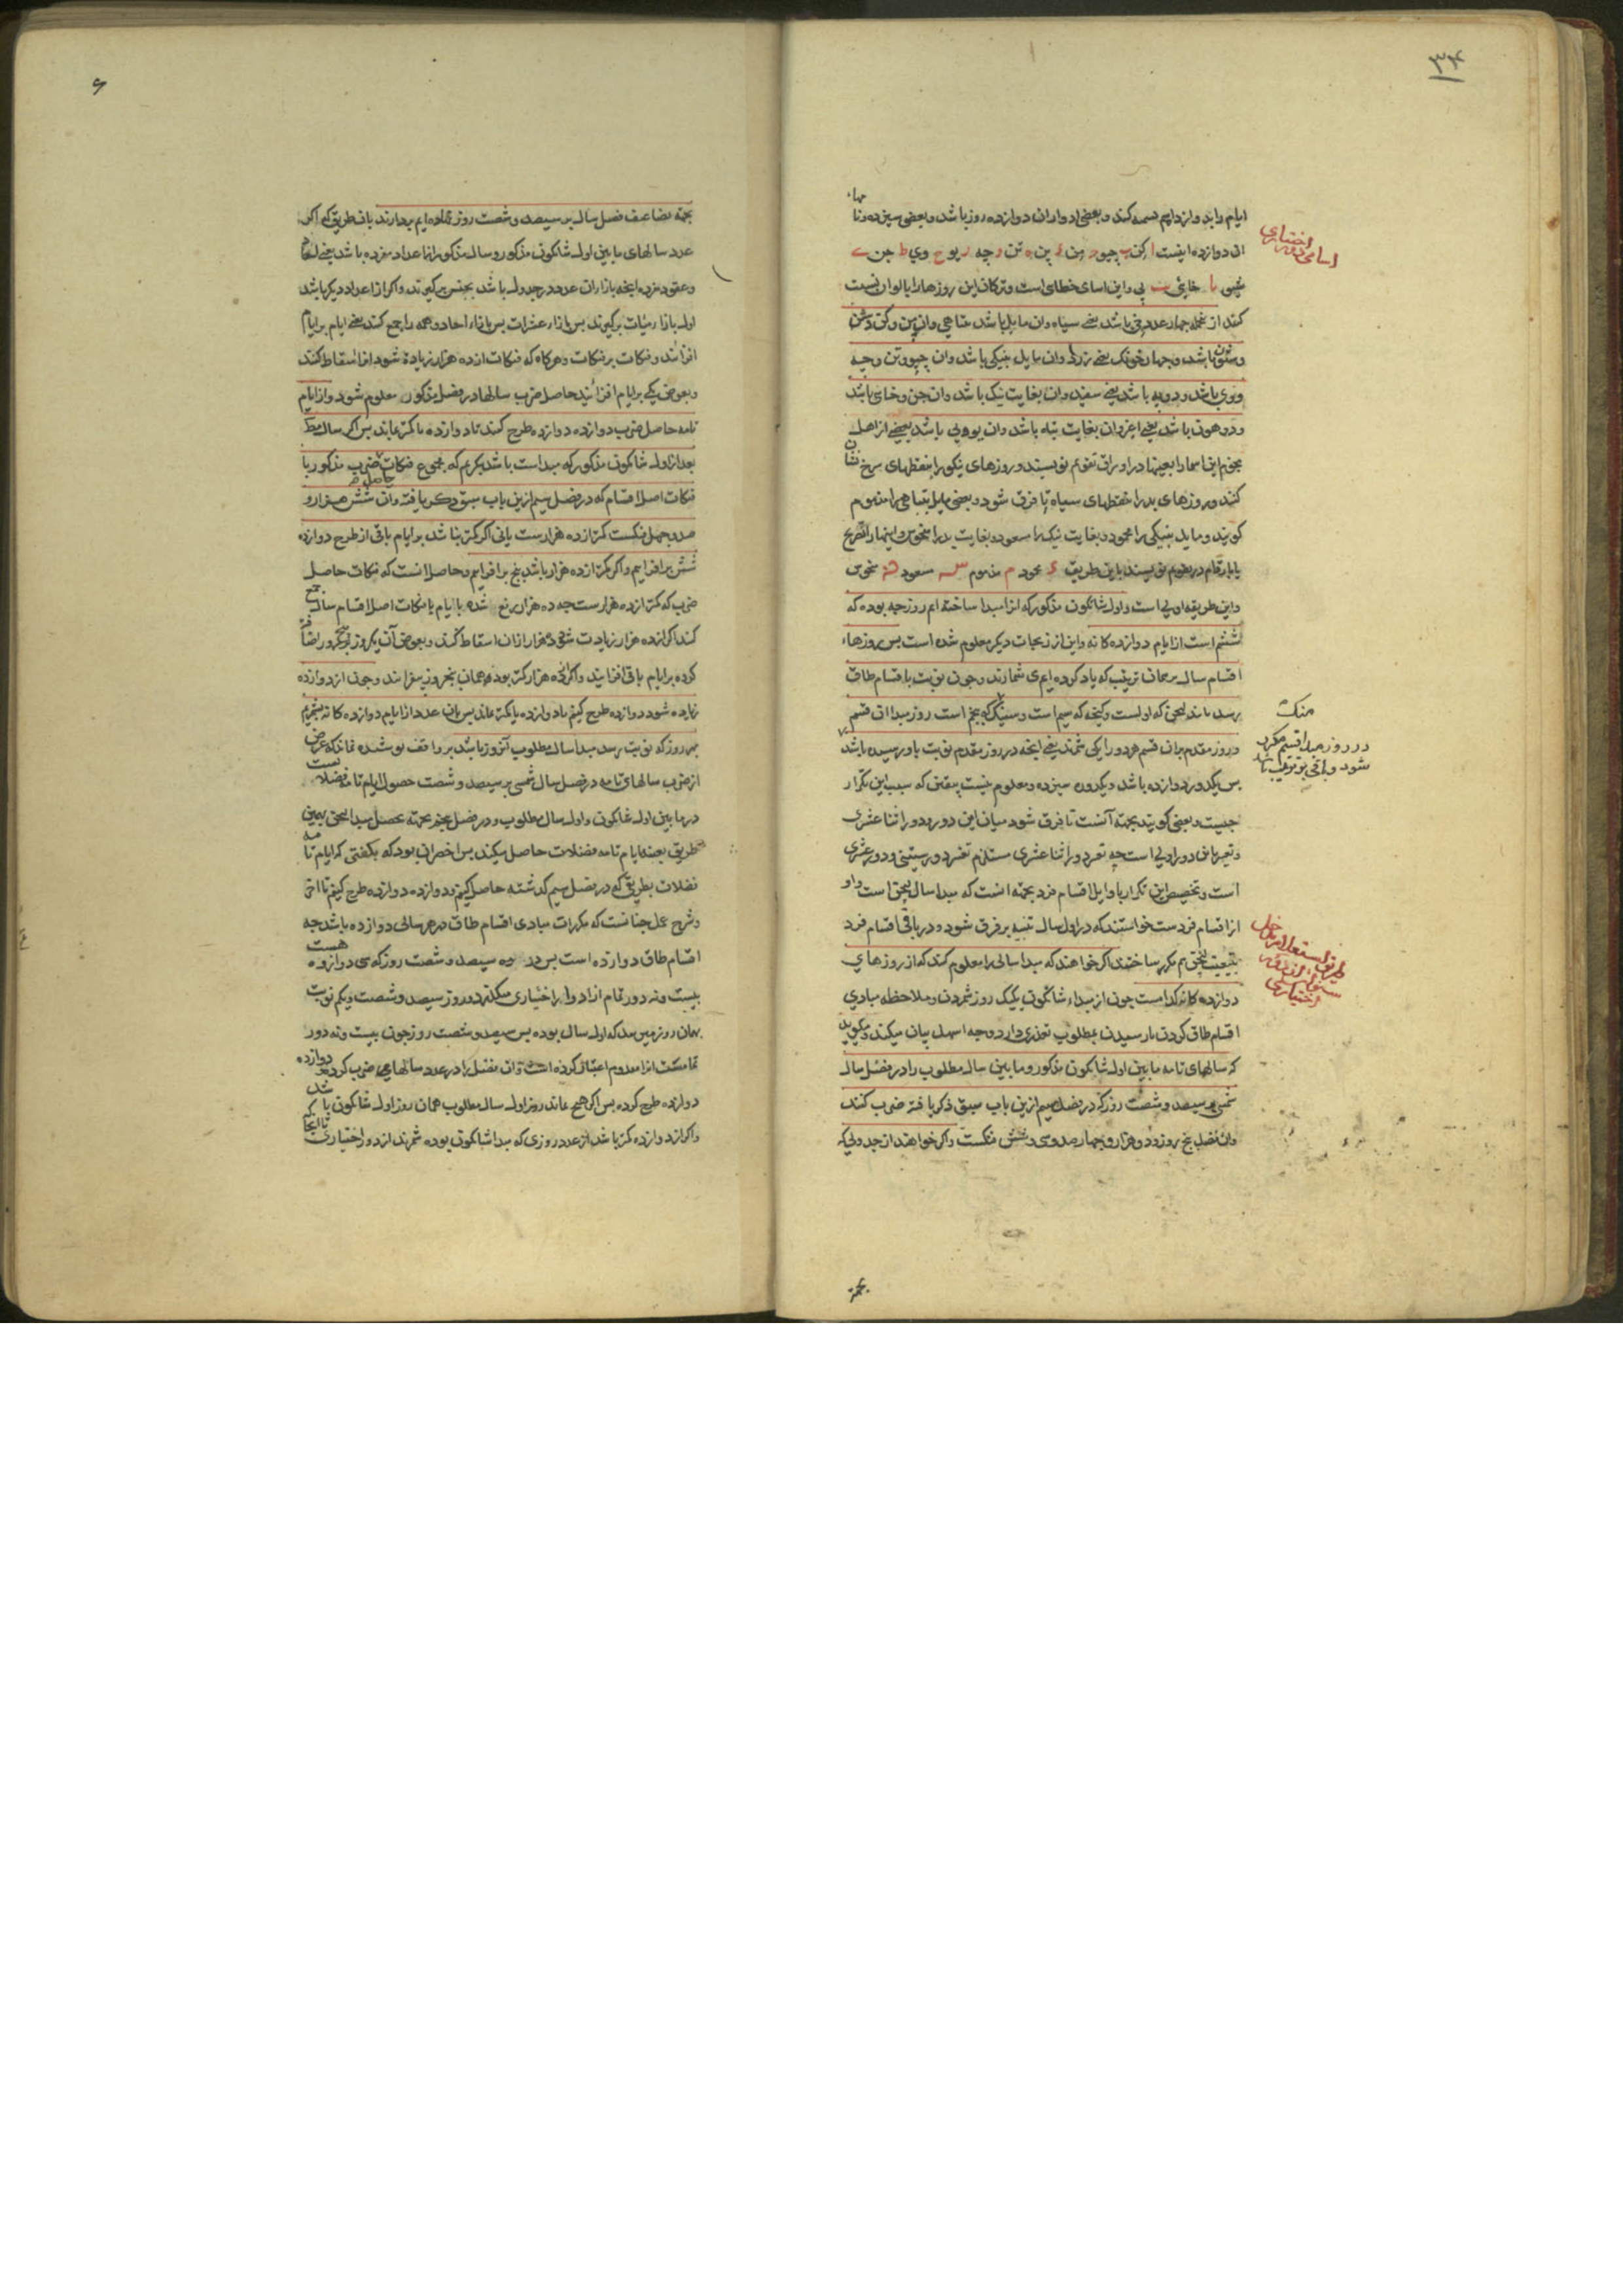 ۳۴
ایام را بدوازده ایم قسمه کنند و بعضی ادوار ان دوازده روز باشد و بعضی سیزده و نامهاء
اسامی دور اختیاری
ان دوازده اینست ا کن ب چیو ج پن د پن ه تن و چه ز یو ح وی ط جن ی
شیی یا خای یب پی و این اسامی خطای است و ترکان این روزها را بالوان نسبت
کنند از جمله چهار عدد باشد یعنی سیاه وان مایل باشد بتباهی وان پن و کن
باشد و چهار خونک یعنی زرد وان مایل بنیکی باشد وان چیو و تن و چه
و وی باشد و دو به باشد یعنی سفید وان بغایت نیک باشد وان جن و خای باشد
و دو هون باشد یعنی اغر وان بغایت بتباه باشد وان یو و پی باشد بعضی از اهل
نجوم این اسما را بعینها در اوراق تقویم نویسند و روزهای نیکو را بنقطهای سرخ نشان
کنند و روزهای بد را بنقطهای سیاه تا فرق شود و بعضی مایل بتباهی را مذموم
کویند و مایل بنیکی را محمود و بغایت نیک را سعود و بغایت بد را منحوس و اینها را بتصریح
یا بارقام در تقویم نویسند باین طریق محمود م مذموم سعود منحوس
و این طریقه اولی است و اول شانکون مذکور که انرا مبدا ساخته ایم روز چه بوده که
ششم است از ایام دوازده کانه و این از زیجات دیکر معلوم شده است پس روزهاء
اقسام سال بر همان ترتیب که یاد کرده ایم می شمارند و چون نوبت باقسام طاق
برسد مانند لیچن که اولست و کیخه که سیم است و سینک که پنجم است روز مبدا ان قسم
منکه
در روز مبدا قسم مکرر
شود و باقی بر ترتیب باشد
و روز مقدم بران قسم هر دو را یکی شمرند یعنی اینچه در روز مقدم نوبت باو رسیده باشد
پس یکدور دوازده باشد و یکدور سیزده و معلوم نیست بیقین که سبب این تکرار
چیست و بعضی کویند بجهه آنست تا فرق شود میان این دور و دور اثنا عشری
و تعبیر باین دور اولی است چه تفرد دور اثنا عشری مستلزم تفرد دور ستینی و دور عشری
است و تخصیص این تکرار باوایل اقسام فرد بجهه انست که مبدا سال لیچن است و او
از اقسام فردست خواستند که در اول سال تنبیه بر فرق شود و در باقی اقسام فرد
طریق استعلام مدخل
سنوات از دور
اختیاری
بتبعیت لیچن هم مکرر ساختند اکر خواهند که مبدا سالی را معلوم کنند که از روزهای
دوازده کانه کدامست چون از مبداء شانکون یکیک روز شمردن و ملاحظه مبادی
اقسام طاق کردن تا رسیدن بمطلوب تعذری دارد وجه اسهل بیان میکند و میکوید
که سالهای تامه مابین اول شانکون مذکور و مابین سال مطلوب را در فضل سال
شمسی بر سیصد و شصت روز که در فصل سیم ازین باب سبق ذکر یافته ضرب کنند
وان فضل پنج روز و دو هزار و چهار صد و سی و شش فنکست و اکر خواهند از جدولی که
بجهة
۶
بجهه تضاعیف فضل سال بر سیصد و شصت روز نهاده ایم بردارند بان طریق که اکر
عدد سالهای مابین اول شانکون مذکور و سال مذکور از اعداد مفرده باشد یعنی احاد
و عقود مفرده اینچه بازاء ان عدد در جدول باشد بجنس برکیرند و اکر از اعداد دیکر باشد
اول بازاء مئات برکیرند پس بازاء عشرات پس بازاء احاد و همه را جمع کنند یعنی ایام بر ایام
افزایند و فنکات بر فنکات و هرکاه که فنکات از ده هزار زیاده شود انرا اسقاط کنند
و بعوض یکی بر ایام افزایند حاصل ضرب سالها در فضل مذکور معلوم شود و از ایام
تامه حاصل ضرب دوازده دوازده طرح کنند تا دوازده یا کمتر بماند پس اکر سال مط
بعد از اول شانکون مذکور که مبداست باشد بنکریم که مجموع فنکات حاصل ضرب مذکور با
فنکات اصل اقسام که در فصل سیم ازین باب سبق ذکر یافته وان شش هزار و
صد و چهل فنکست کمتر از ده هزارست یا نی اکر کمتر نباشد بر ایام باقی از طرح دوازده
شش بر افزاییم و اکر کمتر از ده هزار باشد پنج بر افزاییم و حاصل انست که فنکات حاصل
ضرب که کمتر از ده هزارست چه ده هزار رفع شده بایام با فنکات اصل اقسام سال جمع
کنند اکر از ده هزار زیادت شود ده هزار از ان اسقاط کنند و بعوض آن یکروز
کرده بر ایام باقی افزایند و اکر از ده هزار کمتر بود همان پنج روز بیفزایند و چون از دوازده
زیاده شود دوازده طرح کنیم تا دوازده یا کمتر بماند پس بان عدد از ایام دوازده کانه بشمریم
بهر روز که نوبت برسد مبدا سال مطلوب آنروز باشد بر واقف پوشیده نماند که غرض
از ضرب سالهای تامه در فضل سال شمسی بر سیصد و شصت حصول ایام تامه فضلات
در مابین اول شانکون و اول سال مطلوب و در فصل پنجم بجهه تحصیل مبدا لیچن بهمین
طریق بعینه ایام تامه فضلات حاصل میکند پس اخصر ان بود که بکفتی که ایام تامه
فضلات بطریق که در فصل سیم کذشته حاصل کنیم و دوازده دوازده طرح کنیم تا اخر
و شرح عمل چنانست که مکررات مبادی اقسام طاق در هر سالی دوازده باشد چه
اقسام طاق دوازده است پس در سیصد و شصت روز که سی دوازده هست
بیست و نه دور تمام از ادوار اختیاری میکذرد و روز سیصد و شصت و یکم نوبت
بهمان روز میرسد که اول سال بوده پس سیصد و شصت روز چون بیست و نه دور
تامست انرا معدوم اعتبار کرده است وان فضل را در عدد سالها ضرب کرده دوازده
دوازده طرح کرده پس اکر هیچ نماند روز اول سال مطلوب همان روز اول شانکون باشد
و اکر از دوازده کمتر باشد از عدد روزی که مبدا شانکون بوده شمرند از دور اختیاری تا انجا که